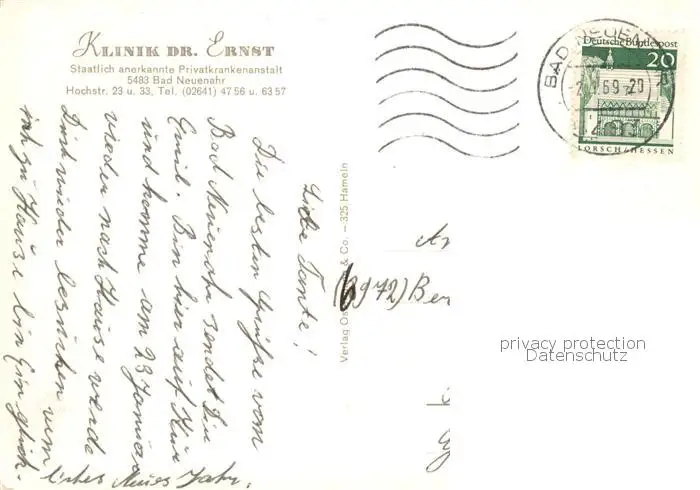 KLINIK DR. ERNST
Staatlich anerkannte Privatkrankenanstalt
5483 Bad Neuenahr
Hochstr. 23 u. 33, Tel. (02641) 47 56 u. 63 57
Liebe Tante!
Die besten Grüße vom
Bad Neuenahr sendet Dir
Emil. Bin hier auf Kur
und komme am 23 Januar
wieder nach Hause werde
Dich wieder besuchen wenn
ich zu Hause bin Ein glück-
liches Neues Jahr.
Verlag Os & Co. — 325 Hameln
BAD NEUENA
69 - 20
Deutsche Bundespost
20
LORSCH/HESSEN
An
(6972) Ber
privacy protection
Datenschutz